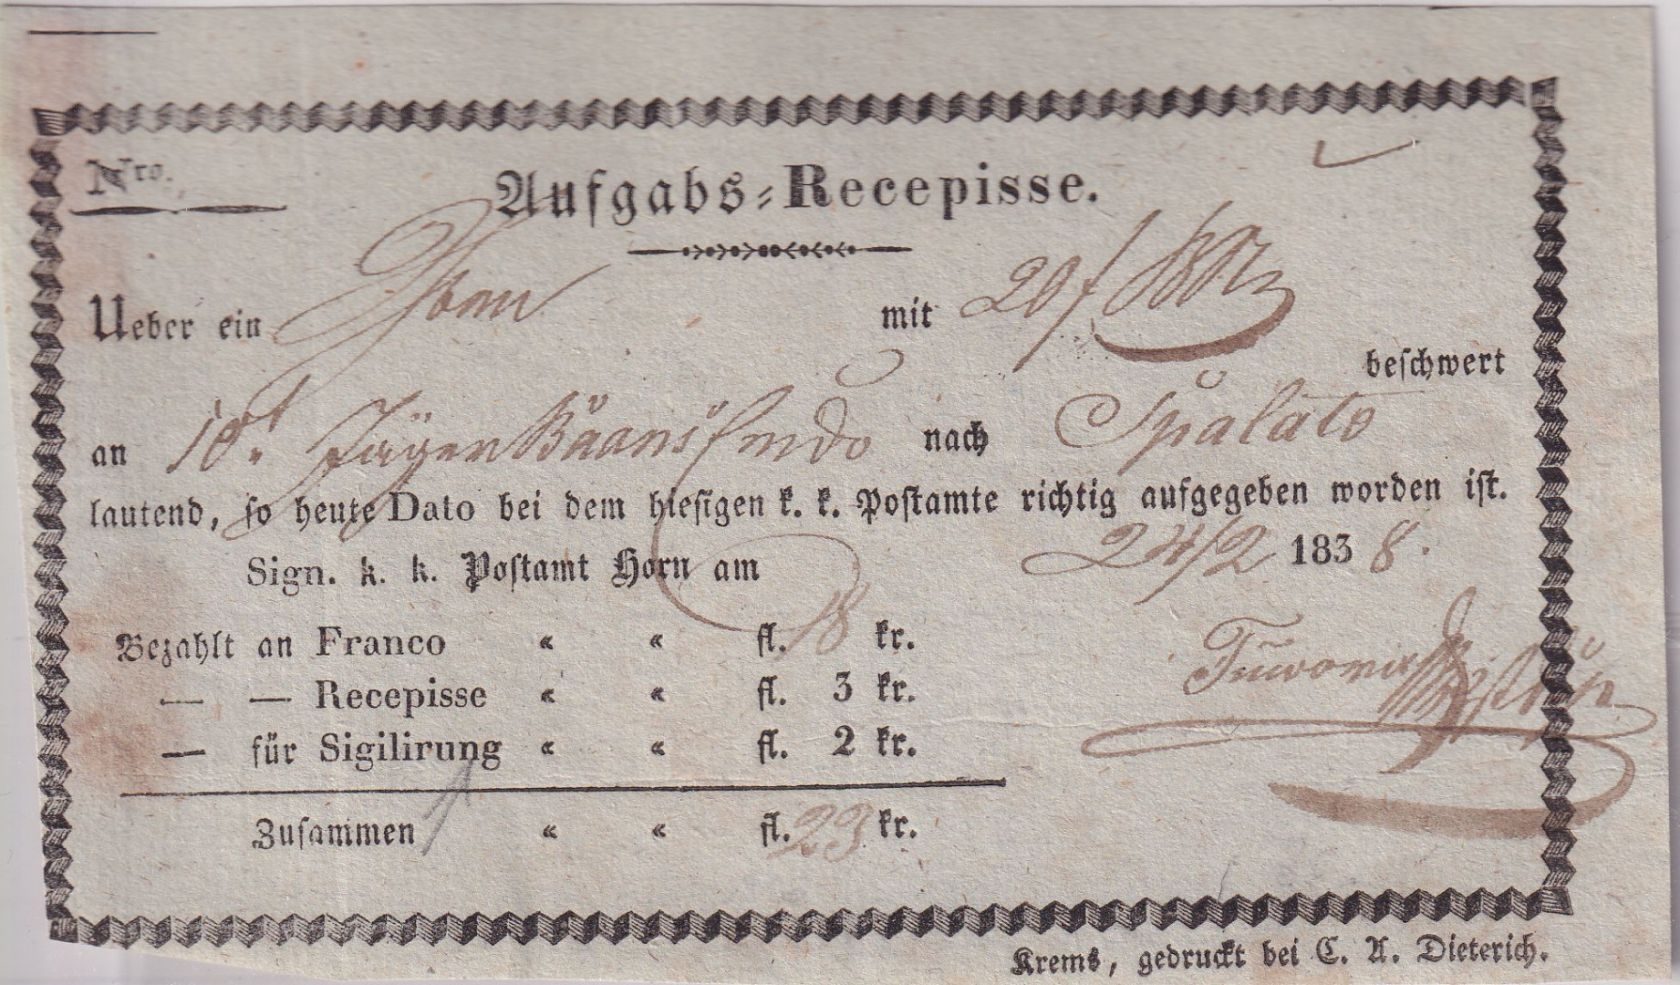 Nro.
Aufgabs-Recepisse.
Ueber ein mit 20 f
beschwert
an 10t Jäger nach Spalato
lautend, so heute Dato bei dem hiesigen k. k. Postamte richtig aufgegeben worden ist.
Sign. k. k. Postamt Horn am 24/2 1838.
Bezahlt an Franco « « fl. 18 kr.
— — Recepisse « « fl. 3 kr.
— für Sigilirung « « fl. 2 kr.
Zusammen « « fl. 23 kr.
Krems, gedruckt bei C. A. Dieterich.